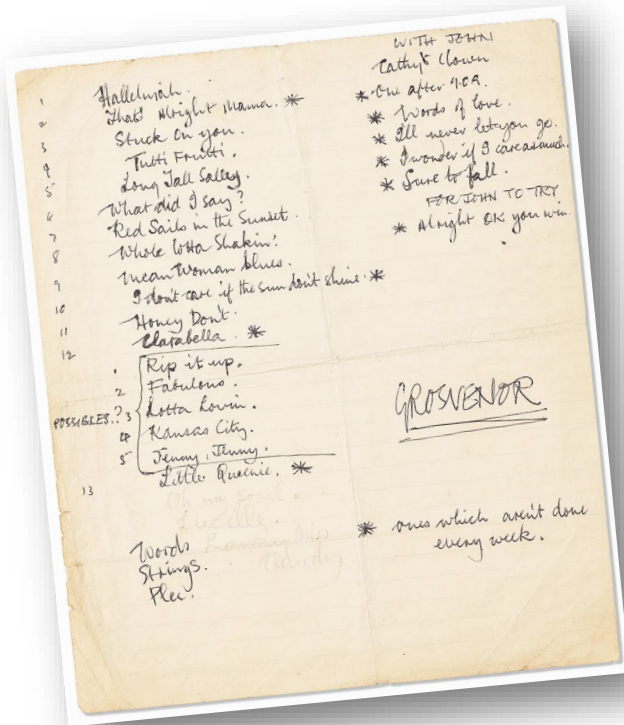 1 Hallelujah.
2 Thats Alright Mama. *
3 Stuck On you.
4 Tutti Frutti.
5 Long Tall Salley.
6 What did I say?
7 Red Sails in the Sunset.
8 Whole lotta Shakin'.
9 Mean Woman blues.
10 I don't care if the sun don't shine. *
11 Honey Don't.
12 Clarabella. *
POSSIBLES.?
1 Rip it up.
2 Fabulous.
3 Lotta Lovin.
4 Kansas City.
5 Jenny, Jenny.
13 Little Queenie. *
Oh my soul.
Lucille.
Words
Strings.
Plec.
WITH JOHN
Cathy's Clown
* One after 9.09.
* Words of love.
* I'll never let you go.
* I wonder if I care as much.
* Sure to fall.
FOR JOHN TO TRY
* Alright OK you win.
GROSVENOR
* ones which aren't done
every week.